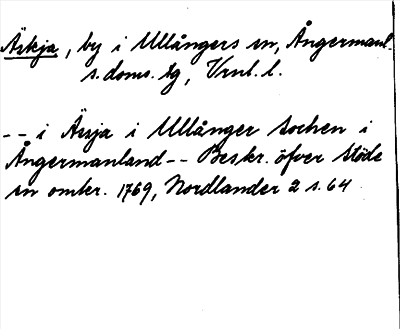 Äskja, by i Ullångers sn, Ångermanl.
s. doms. tg, Vrnl. l.
-- i Äsja i Ullånger Sochen i
Ångermanland -- Beskr. öfver Stöde
sn omkr. 1769, Nordlander 2 s. 64